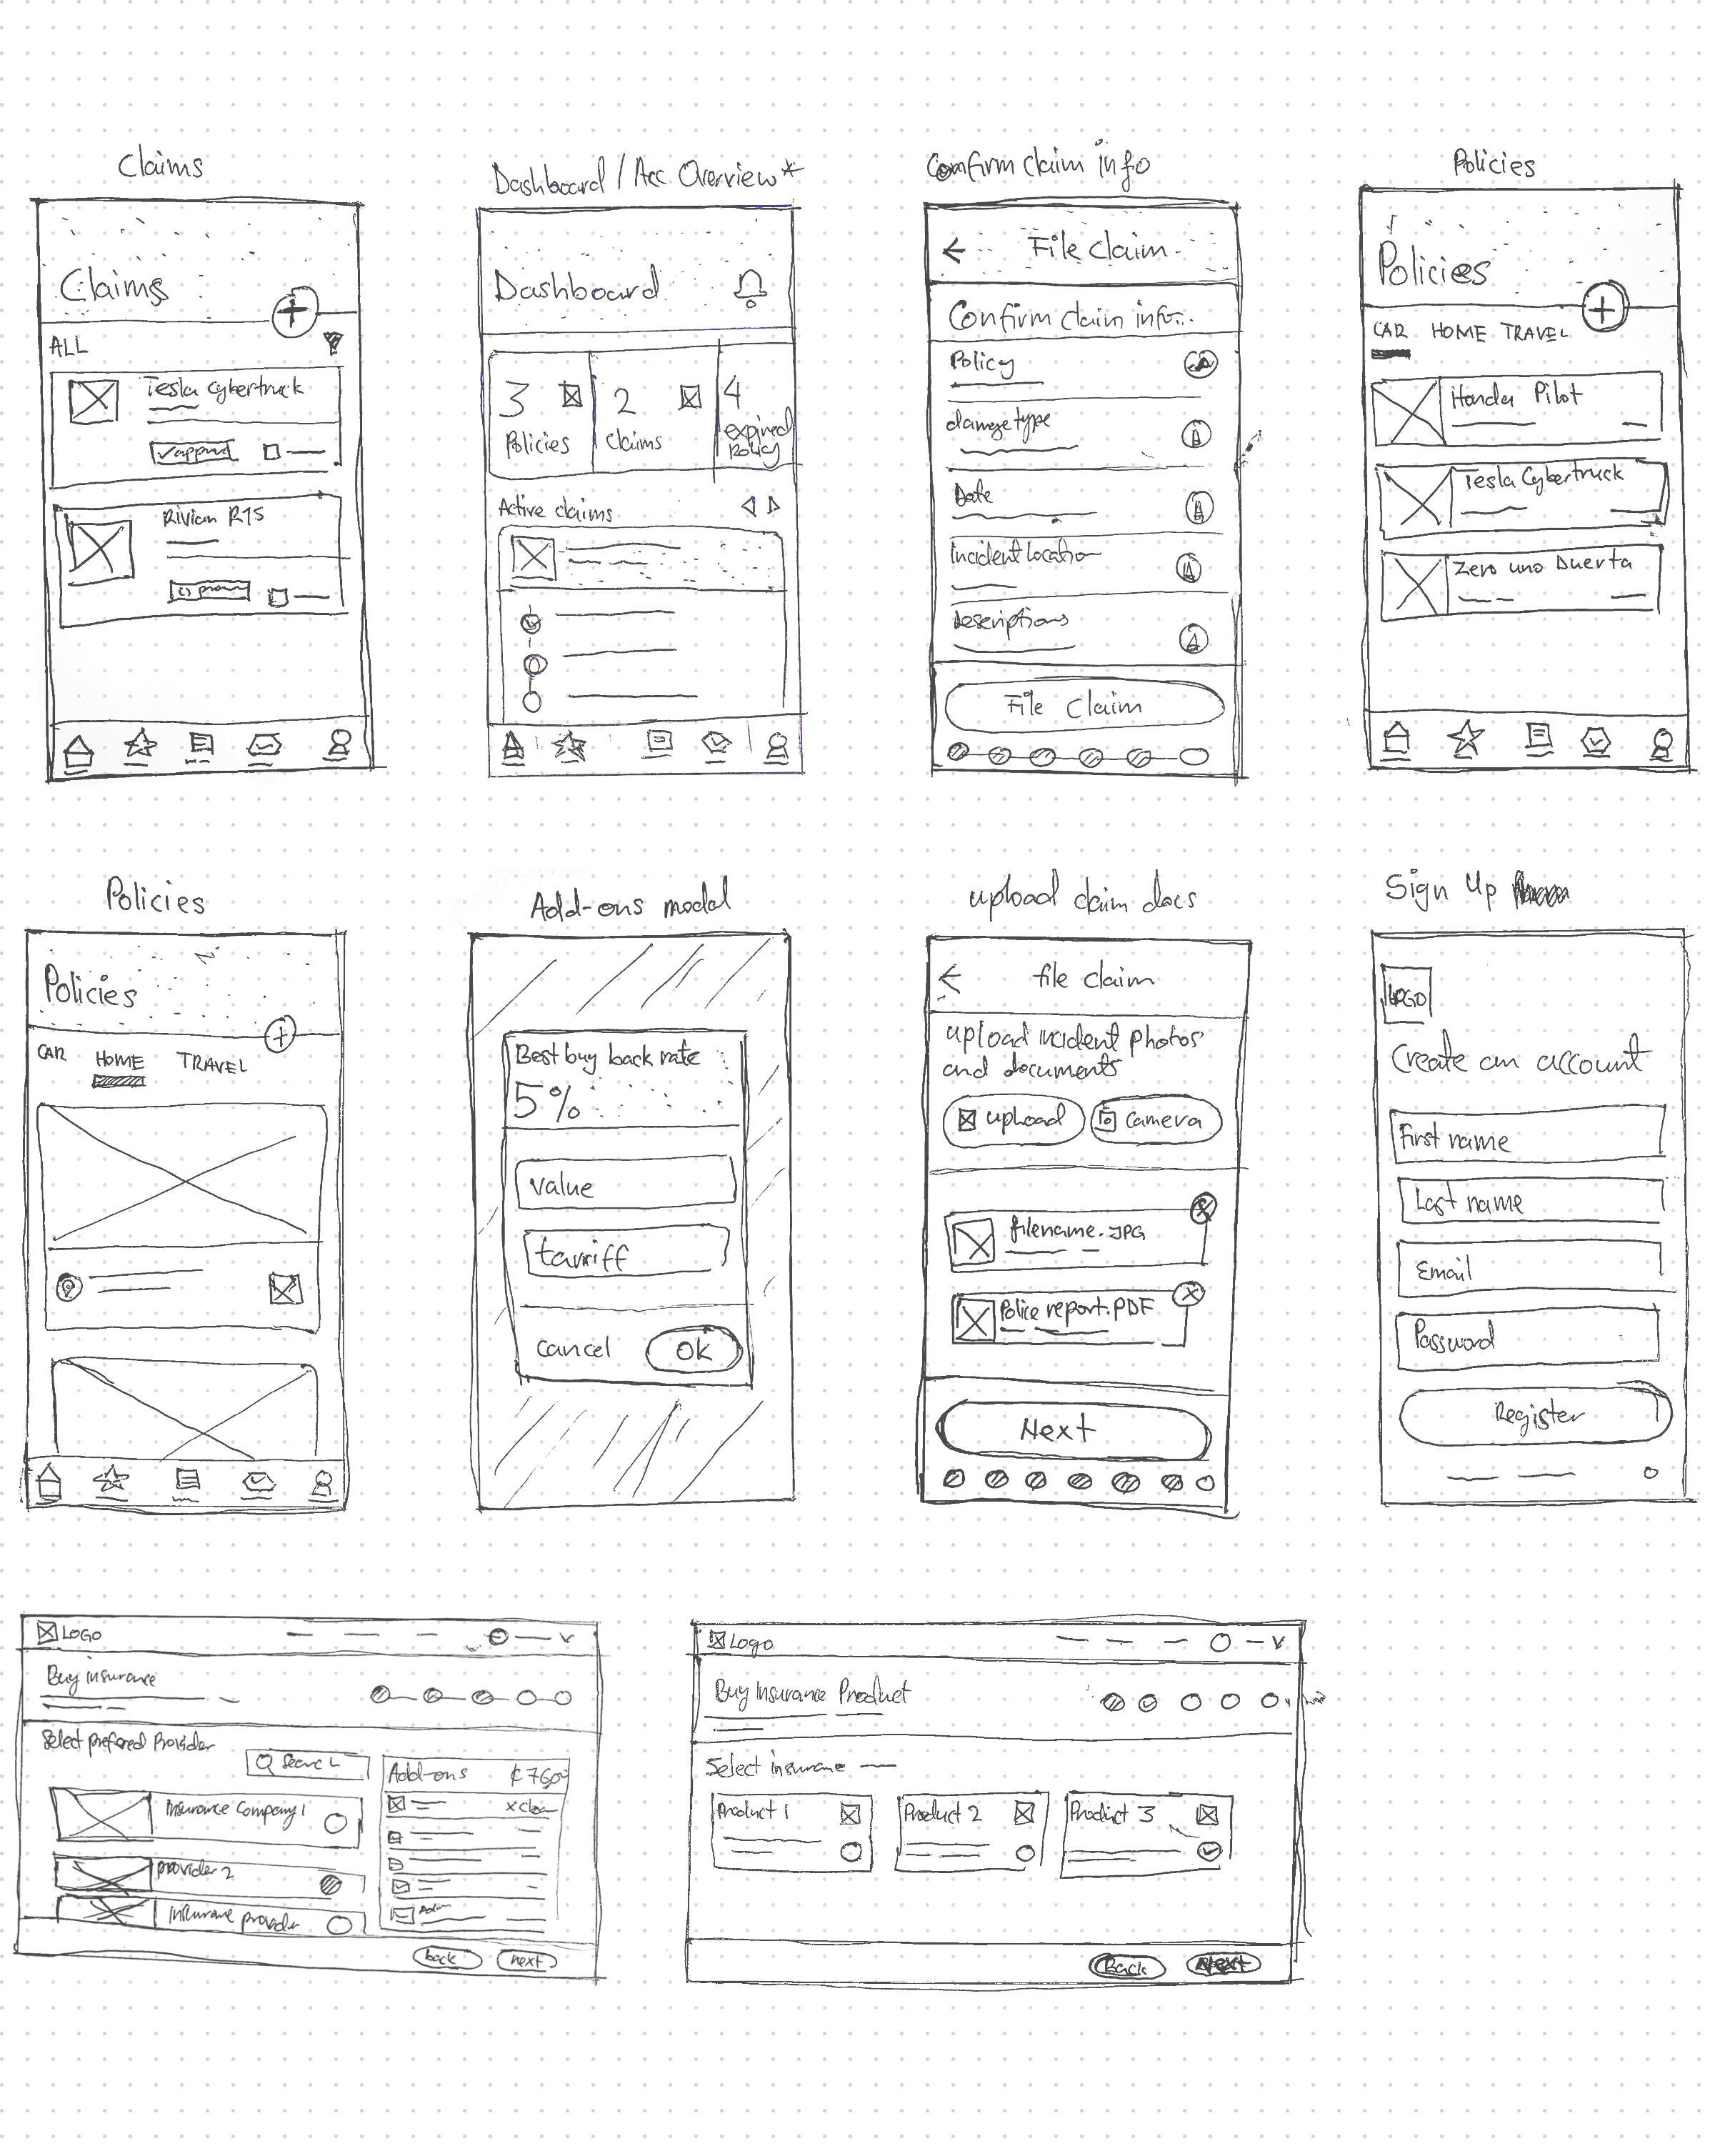 Claims
Claims
ALL
Tesla Cybertruck
Rivian R1S
Dashboard / Acc. Overview*
Dashboard
3
Policies
2
claims
4
expired
policy
Active claims
Confirm claim info
File Claim
Confirm claim info...
Policy
damage type
Date
Incident location
descriptions
File Claim
Policies
Policies
CAR HOME TRAVEL
Honda Pilot
Tesla Cybertruck
Zero uno Duerta
Policies
Policies
CAR HOME TRAVEL
Add-ons modal
Best buy back rate
5%
value
tarriff
cancel OK
upload claim docs
file claim
upload incident photos
and documents
upload camera
filename.JPG
Police report.PDF
Next
Sign Up
LOGO
Create an account
First name
Last name
Email
Password
Register
LOGO
Buy insurance
Select prefered Provider
Search
Insurance Company 1
provider 2
Insurance provider
Add-ons
back next
Logo
Buy Insurance Product
Select insurance
Product 1
Product 2
Product 3
Back Next